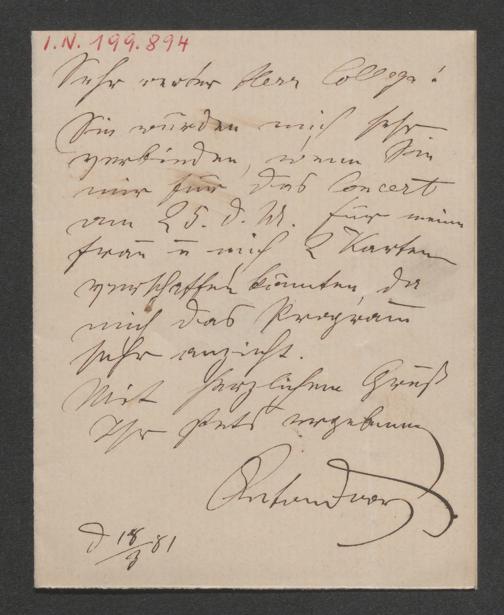 I.N. 199.894
Sehr werter Herr College!
Sie würden mich sehr
verbinden, wenn Sie
mir für das Concert
am 25. d. M. für meine
Frau u mich 2 Karten
verschaffen könnten, da
mich das Programm
sehr anzieht.
Mit herzlichem Gruß
Ihr stets ergebener
Anton Door
d 18/3 81